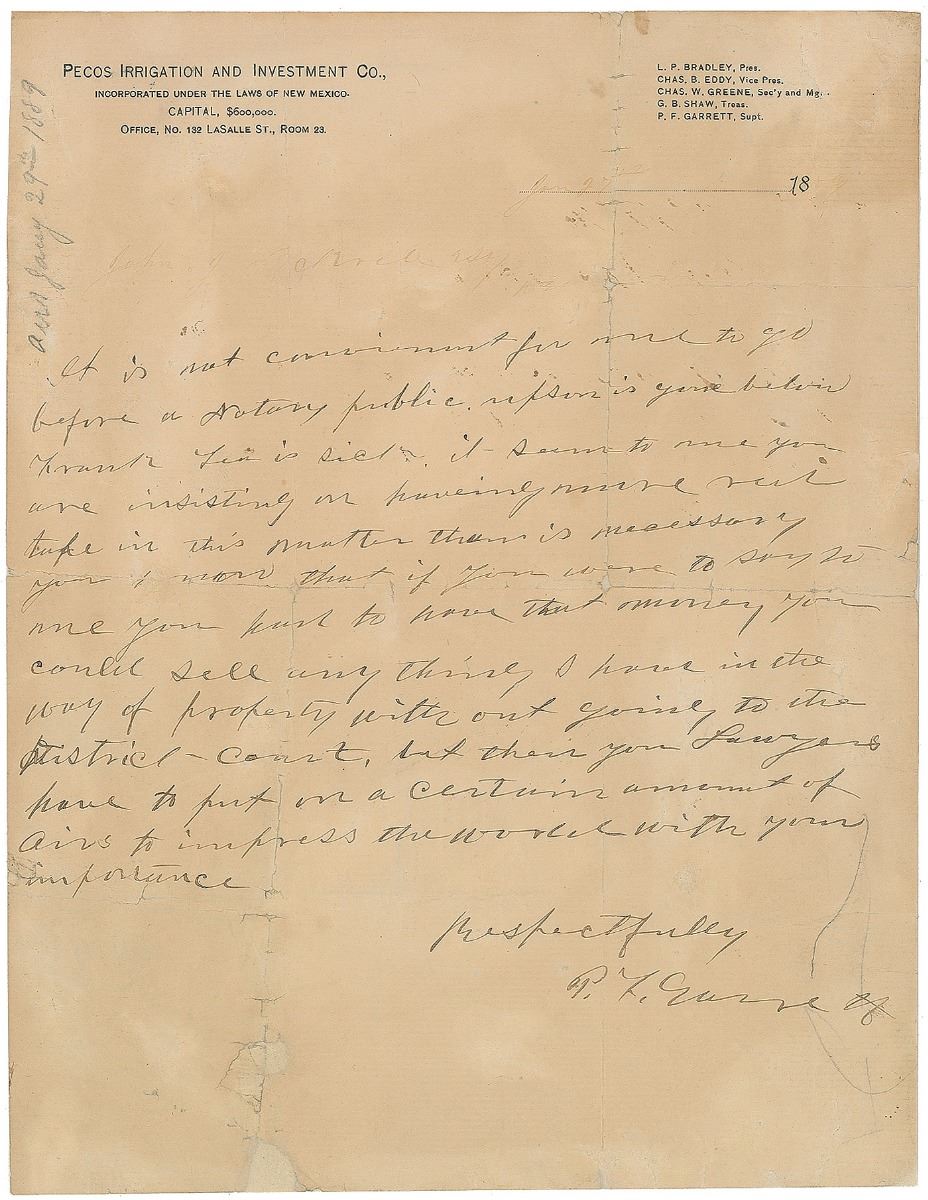 PECOS IRRIGATION AND INVESTMENT CO.,
INCORPORATED UNDER THE LAWS OF NEW MEXICO.
CAPITAL, $600,000.
OFFICE, NO. 132 LASALLE ST., ROOM 23.
L. P. BRADLEY, Pres.
CHAS. B. EDDY, Vice Pres.
CHAS. W. GREENE, Sec'y and Mg.
G. B. SHAW, Treas.
P. F. GARRETT, Supt.
Ansd Jany 29th 1889
Jan 18
John Esq
It is not convienent for me to go
before a Notary public. upson is gone below
Frank Lea is sick, it seems to me you
are insisting on haveing more red
tape in this matter than is necessary
you know that if you were to say to
me you had to have that money you
could sell any thing I have in the
way of property with out going to the
District Court, but then you Lawyers
have to put on a certain amount of
airs to impress the world with your
importance
Respectfully
P. F. Garrett